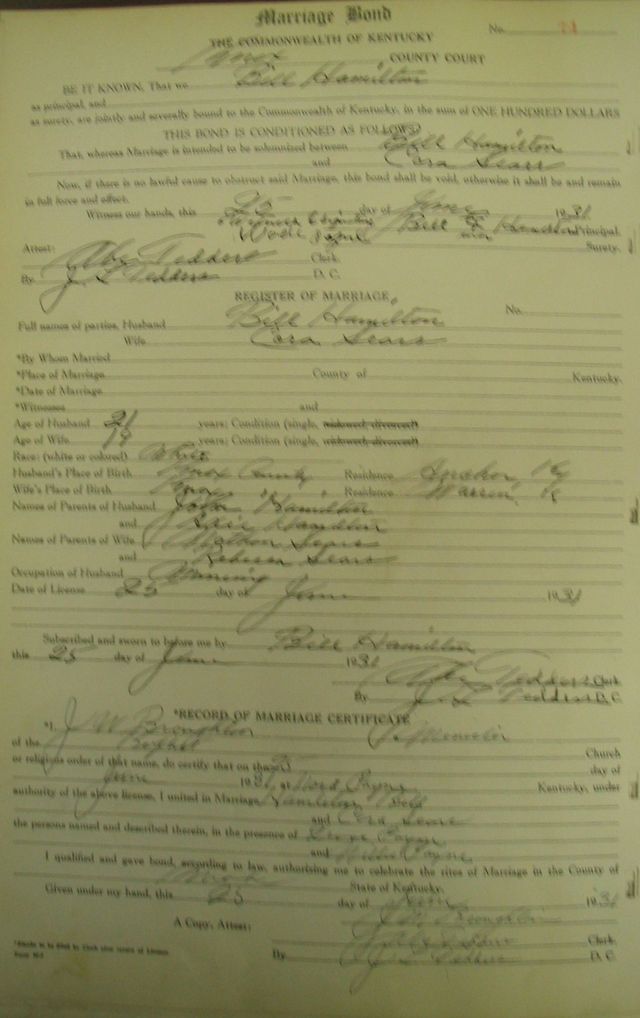 Marriage Bond
No. 21
THE COMMONWEALTH OF KENTUCKY
Knox COUNTY COURT
BE IT KNOWN, That we Bill Hamilton
as principal, and
as surety, are jointly and severally bound to the Commonwealth of Kentucky, in the sum of ONE HUNDRED DOLLARS
THIS BOND IS CONDITIONED AS FOLLOWS:
That, whereas Marriage is intended to be solemnized between Bill Hamilton
and Cora Sears
Now, if there is no lawful cause to obstruct said Marriage, this bond shall be void, otherwise it shall be and remain
in full force and effect.
Witness our hands, this 25 day of June 1931
Bill Principal.
Surety.
Attest:
Abe Tedders Clerk.
By J. L. Tedders D. C.
REGISTER OF MARRIAGE
No.
Full names of parties, Husband Bill Hamilton
Wife Cora Sears
*By Whom Married
*Place of Marriage County of Kentucky.
*Date of Marriage
*Witnesses and
Age of Husband 21 years; Condition (single, widowed, divorced)
Age of Wife 18 years; Condition (single, widowed, divorced)
Race: (white or colored) White
Husband's Place of Birth Knox County Residence Ky
Wife's Place of Birth Knox " Residence Warren, Ky
Names of Parents of Husband John Hamilton
and Hamilton
Names of Parents of Wife Sears
and Rebecca Sears
Occupation of Husband
Date of License 25 day of June 1931
Subscribed and sworn to before me by Bill Hamilton
this 25 day of June 1931
Abe Tedders Clerk
By J. L. Tedders D. C.
*RECORD OF MARRIAGE CERTIFICATE
*I, J W Broughton Minister
of the Baptist Church
or religious order of that name, do certify that on the 25 day of
June 1931 at Payne Kentucky, under
authority of the above license, I united in Marriage Hamilton Bill
and Cora Sears
the persons named and described therein, in the presence of Payne
and Payne
I qualified and gave bond, according to law, authorising me to celebrate the rites of Marriage in the County of
Knox State of Kentucky.
Given under my hand, this 25 day of June 1931
J W Broughton
A Copy, Attest: Clerk.
By J. L. Tedders D. C.